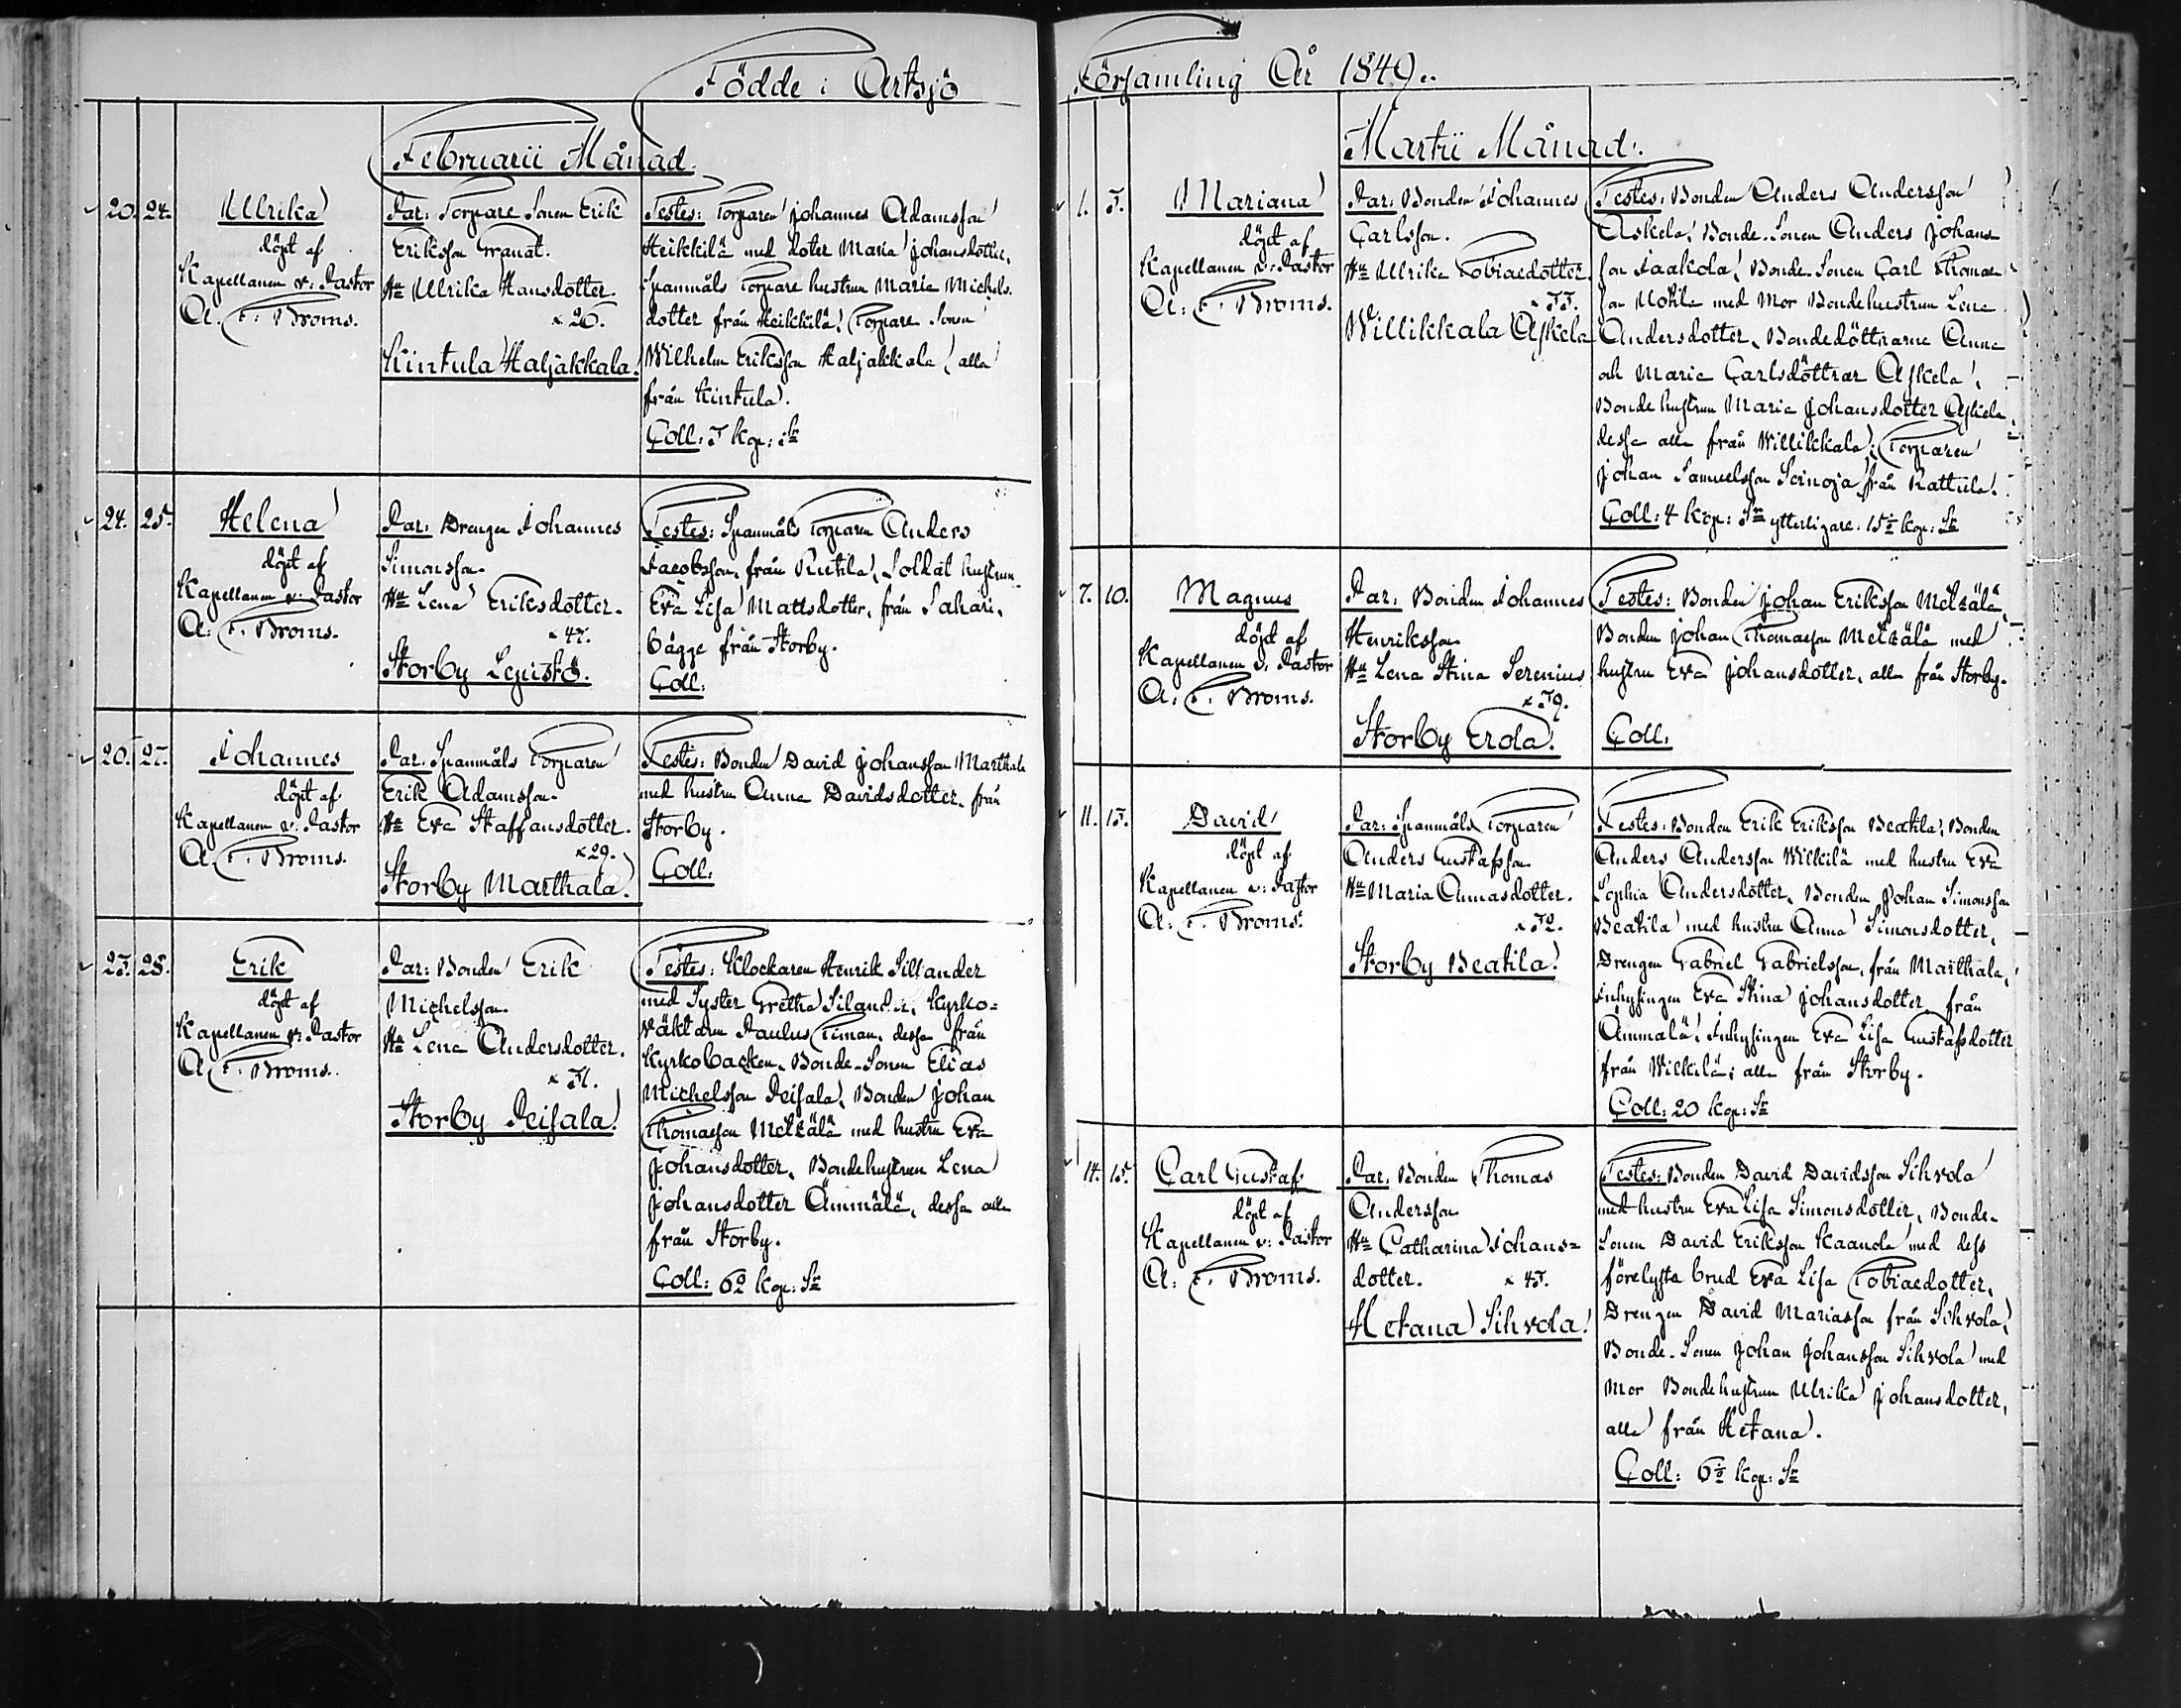 Födde i Artsjö
Februarii Månad.
20. 24.
Ulrika
döpt af
Kapellanen v: Pastor
A. F. Broms.
Par: Torpare Sonen Erik
Eriksson Granat.
Hu Ulrika Hansdotter.
x 26.
Kintula Haljakkala.
Testes: Torparen Johannes Adamsson
Heikkilä med doter Maria Johansdotter,
Spanmåls Torpare hustrun Maria Michels-
dotter från Heikkilä, Torpare Sonen
Wilhelm Eriksson Haljakkala, alla
från Kintula.
Coll: 3 kop: Sr
24. 25.
Helena
döpt af
Kapellanen v: Pastor
A: F. Broms.
Par: Drengen Johannes
Simonsson.
Hu Lena Eriksdotter.
x 43.
Storby Lepistö.
Testes: Spanmåls Torparen Anders
Jacobsson, från Rutila, Soldat hustrun
Eva Lisa Mattsdotter, från Sahari,
bägge från Storby.
Coll:
20. 27.
Johannes
döpt af
Kapellanen v: Pastor
A. F. Broms.
Par: Spanmåls Torparen
Erik Adamsson.
Hu Eva Staffansdotter.
x 29.
Storby Marthala.
Testes: Bonden David Johansson Marthala
med hustru Anna Davidsdotter, från
Storby.
Coll:
23. 28.
Erik
döpt af
Kapellanen v: Pastor
A. F. Broms.
Par: Bonden Erik
Michelsson.
Hu Lena Andersdotter.
x 31.
Storby Peisala.
Testes: Klockaren Henrik Sillander
med Syster Gretha Silander, Kyrko=
väktaren Paulus Timan, dessa från
Kyrkobacken, Bonde-Sonen Elias
Michelsson Peisala, Bonden Johan
Thomasson Mellälä med hustru Eva
Johansdotter, Bondehustrun Lena
Johansdotter Ämmälä, dessa alla
från Storby.
Coll: 62 kop: Sr
Församling År 1849..
Martii Månad.
1. 3.
Mariana
döpt af
Kapellanen v: Pastor
A: F. Broms.
Par: Bonden Johannes
Carlsson.
Hu Ulrika Tobiaedotter.
x 33.
Willikkala Askela
Testes: Bonden Anders Andersson
Askela, Bonde-Sonen Anders Johans
son Jaakola, Bonde-Sonen Carl Thomas
son Notila med Mor Bondehustrun Lena
Andersdotter, Bondedöttrarne Anna
och Maria Carlsdöttrar Askela,
Bonde hustrun Maria Johansdotter Askela
dessa alla från Willikkala; Torparen
Johan Samuelsson Seinoja från Rattula.
Coll: 4 kop: Sr ytterligare 15 kop: Sr
7. 10.
Magnus
döpt af
Kapellanen v: Pastor
A: F. Broms.
Par: Bonden Johannes
Henriksson
Hu Lena Stina Serenius
x 39.
Storby Erola.
Testes: Bonden Johan Eriksson Mellälä,
Bonden Johan Thomasson Mellälä med
hustru Eva Johansdotter, alla från Storby.
Coll.
11. 13.
David
döpt af
Kapellanen v: Pastor
A: F. Broms.
Par: Spanmåls Torparen
Anders Gustafsson
Hu Maria Annasdotter.
x 32.
Storby Beatila.
Testes: Bonden Erik Eriksson Beatila, Bonden
Anders Andersson Wilkilä med hustru Eva
Sophia Andersdotter, Bonden Johan Simonsson
Beatila med hustru Anna Simonsdotter,
Drengen Gabriel Gabrielsson, från Marthala,
Inhysingen Eva Stina Johansdotter från
Ämmälä, Inhysingen Eva Lisa Gustafsdotter
från Wilkilä; alla från Storby.
Coll: 20 kop: Sr
14. 15.
Carl Gustaf
döpt af
Kapellanen v: Pastor
A: F. Broms.
Par: Bonden Thomas
Andersson
Hu Catharina Johans=
dotter. x 43.
Hetana Sihvola.
Testes: Bonden David Davidsson Sihvola
med hustru Eva Lisa Simonsdotter, Bonde-
Sonen David Eriksson Kaanola med dess
förelysta brud Eva Lisa Tobiaedotter,
Drengen David Mariasson från Sihvola,
Bonde-Sonen Johan Johansson Sihvola med
Mor Bondehustrun Ulrika Johansdotter,
alla från Hetana.
Coll: 6 kop: Sr